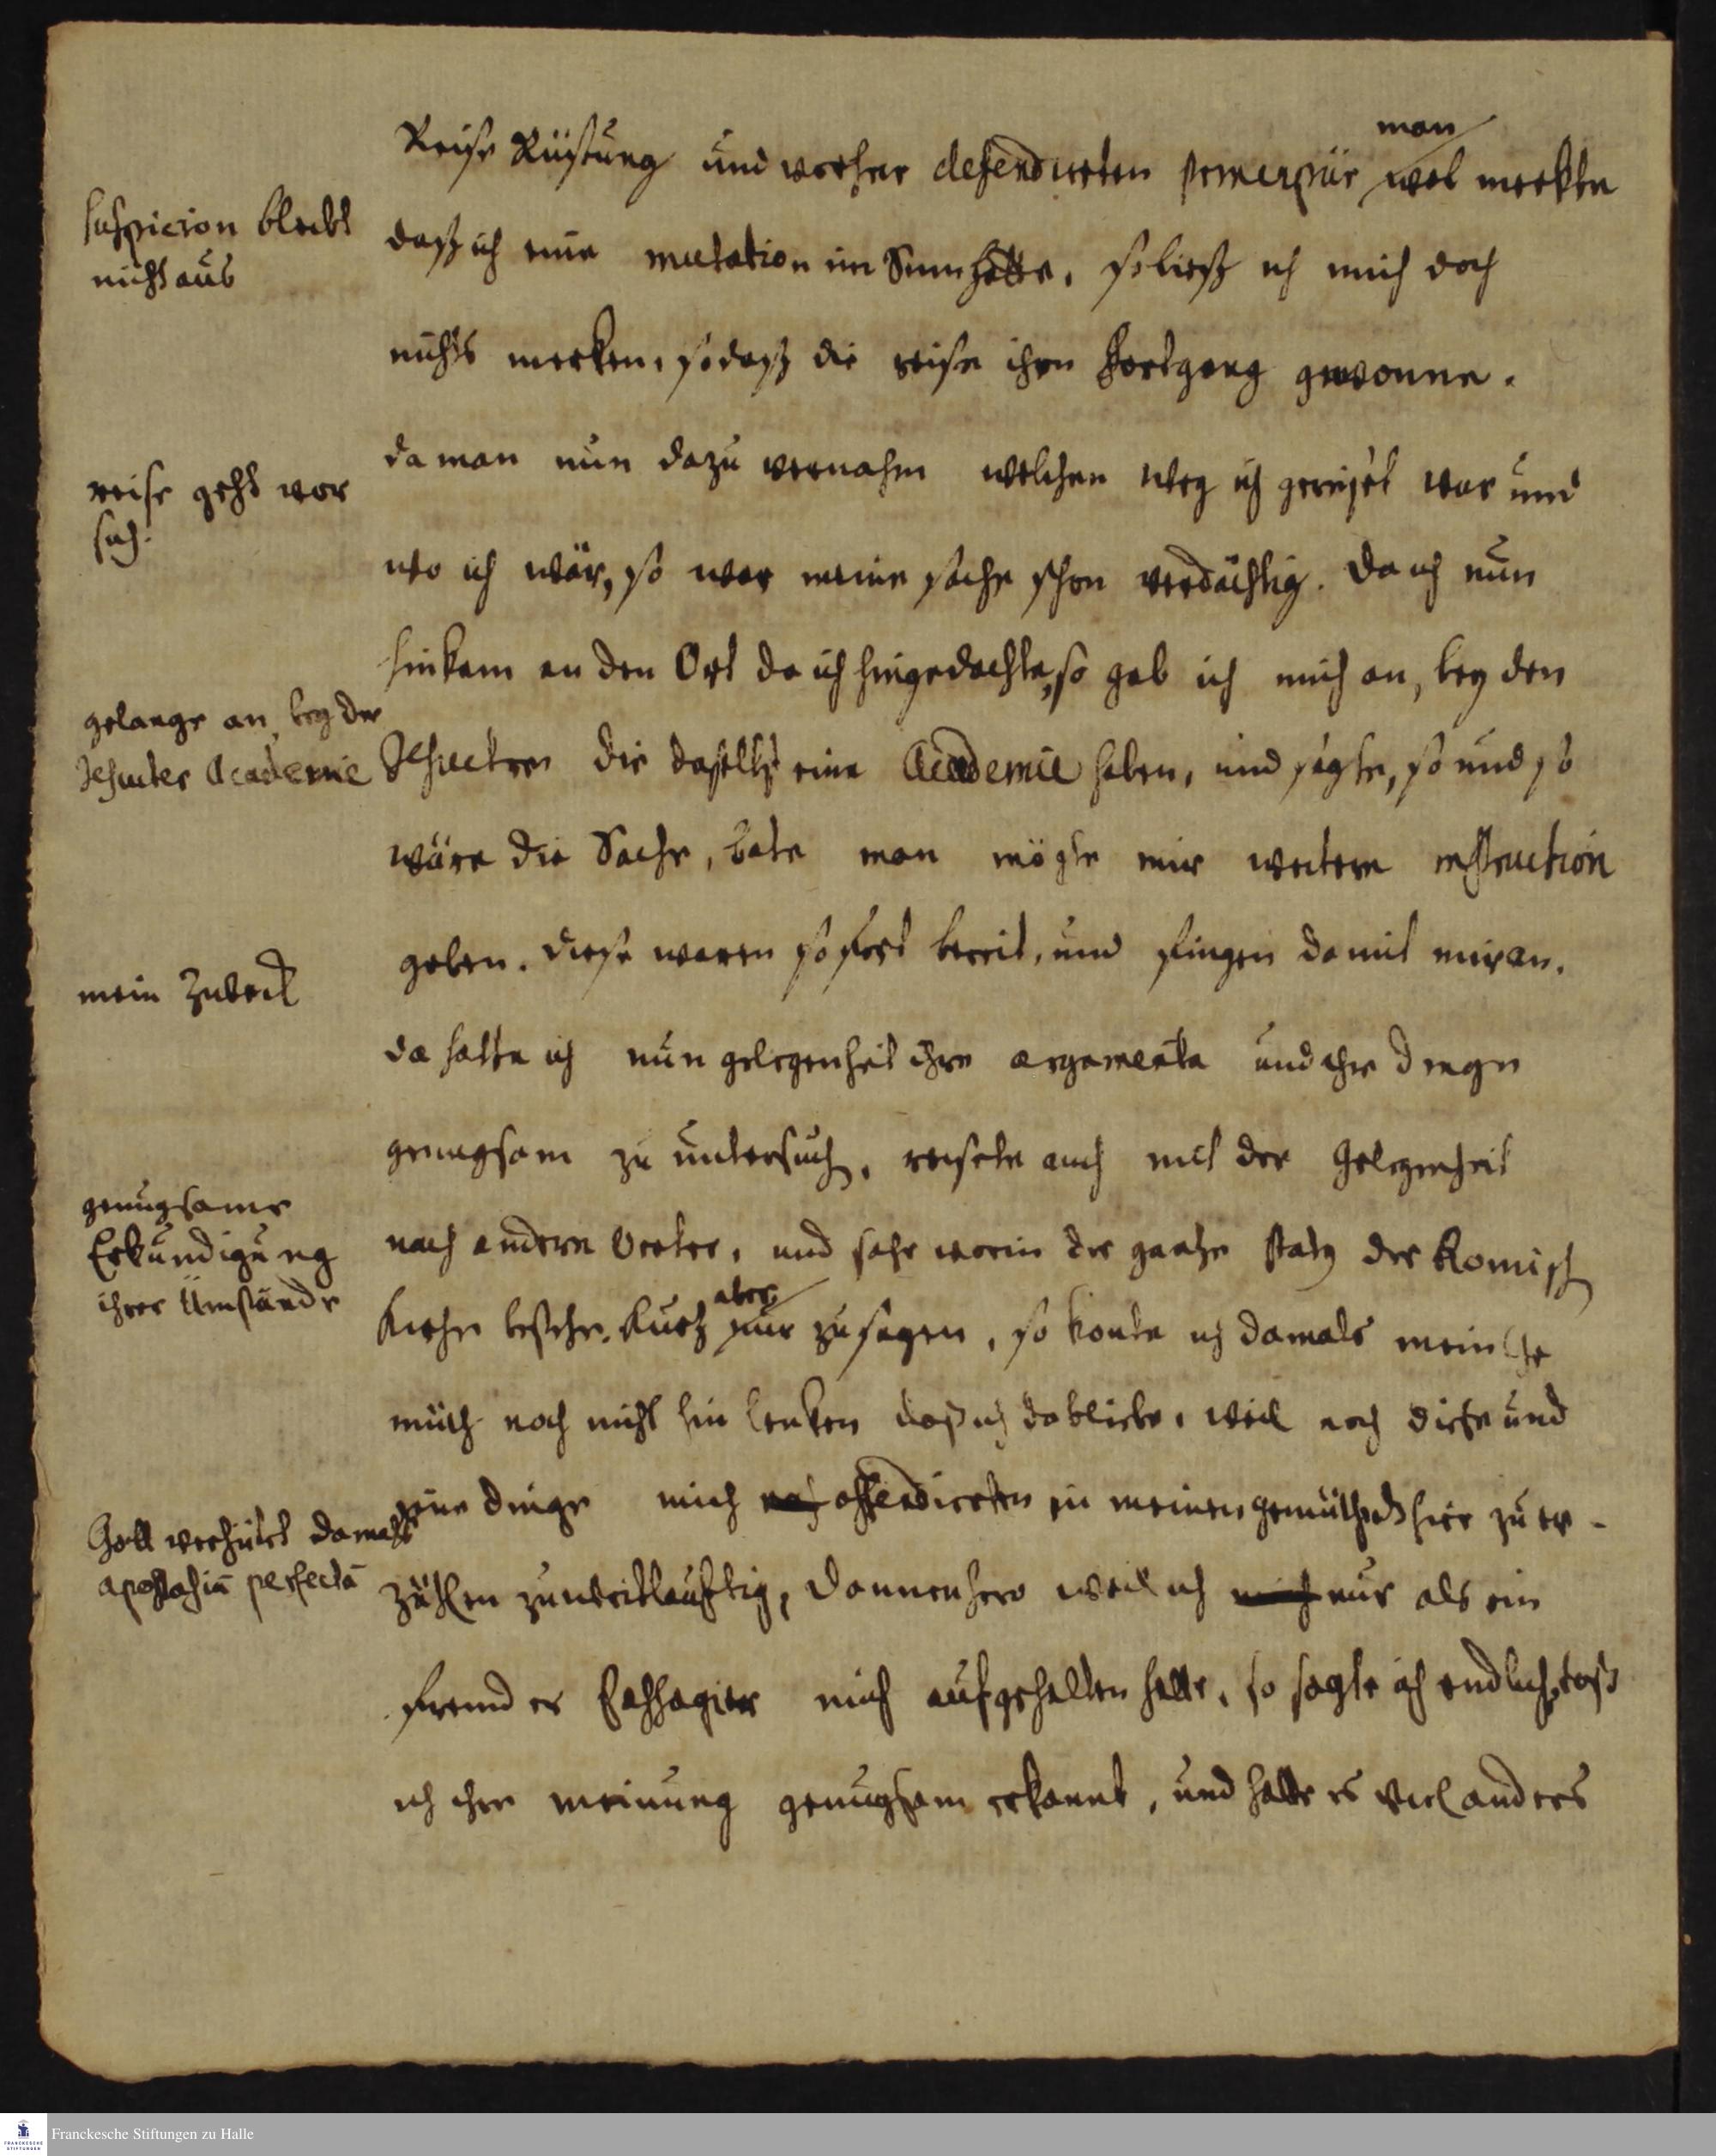 man
Reise Rüstung und vorher defendirten wol merkte
suspicion bleibt
nicht aus
daß ich eine mutation im Sinn hätte, so ließ ich mich doch
nichts merken, so daß die reise ihren fortgang gewonne.
reise geht vor
sich.
da man nun dazu vernahm welchen Weg ich gereiset war und
wo ich wär, so war meine sache schon verdächtig. Da ich nun
hinkam an den Ort da ich hingedachte, so gab ich mich an, bey den
gelange an bey der
Jesuiter Academie
Jesuitern die daselbst eine Academie haben, und sagte, so und so
wäre die Sache, bate man mögte mir weitern instruction
mein Zweck
geben. diese waren so fort bereit, und fingen damit mir an.
da hatte ich nun gelegenheit ihre argumenta und ihre dinge
genugsam zu untersuch, reisete auch mit der Gelegenheit
genugsame
Erkundigung
ihrer Umstände
nach andern Oerter, und sahe worin der gantze staty der Römisch
Kirche bestehe.
aber
Kurtz nur zu sagen, so konte ich damals mein Ge
müth noch nicht hin lenken daß ich da bliebe, weil noch diese und
jene dinge mich noch offendirten in meinen gemüthe hier zu er-
Gott verhütet damals
apostasiā perfectā
zählen zu weitläuftig, dannenhero weil ich mich nur als ein
frembder Passagier mich aufgehalten hatte, so sagte ich endlich, daß
ich ihre meinung genugsam erkannt, und hatte es viel anders
Franckesche Stiftungen zu Halle